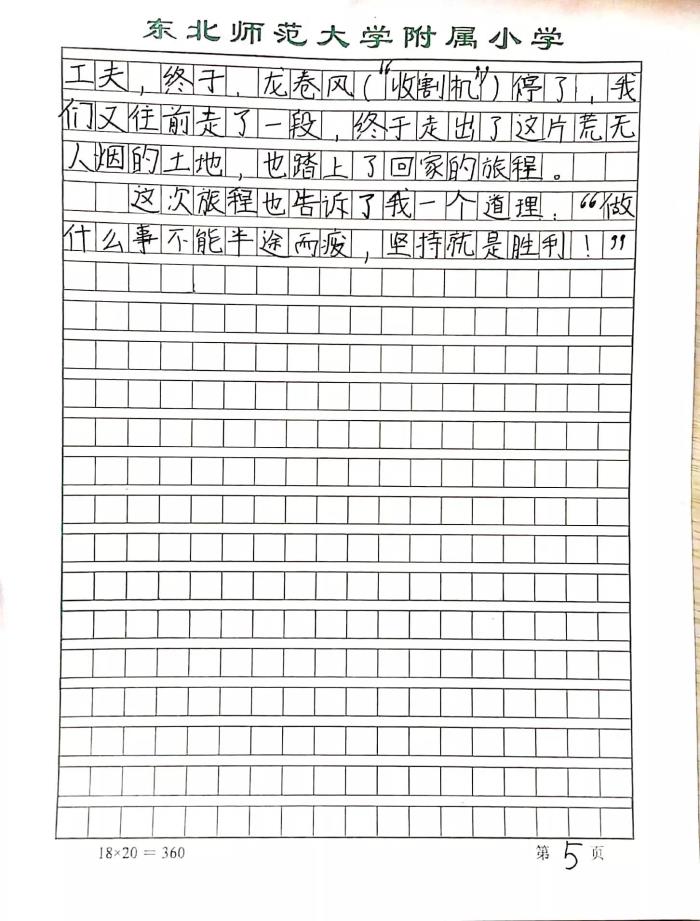 东北师范大学附属小学
工夫，终于，龙卷风（“收割机”）停了，我
们又往前走了一段，终于走出了这片荒无
人烟的土地，也踏上了回家的旅程。
这次旅程也告诉了我一个道理：“做
什么事不能半途而疲，坚持就是胜利！”
18×20＝360
第 5 页